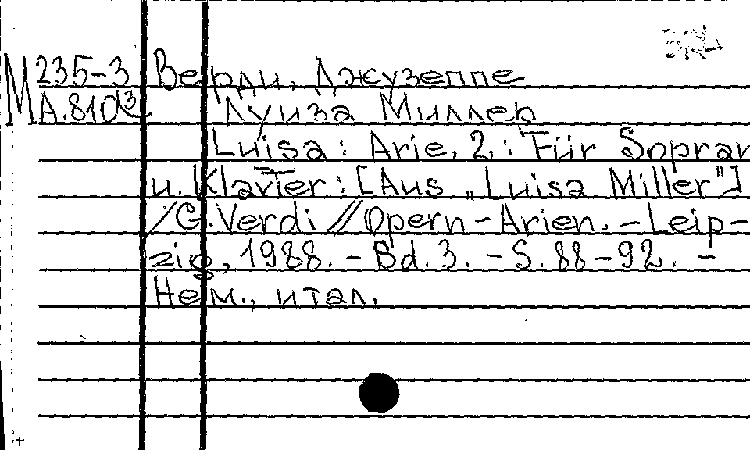 М 235-3 Верди, Джузеппе
А.810 Луиза Миллер
Luisa: Arie, 2.: Für Sopran
u. Klavier: [Aus „Luisa Miller"]
/G. Verdi // Opern-Arien. - Leip-
zig, 1988. - Bd. 3. - S. 88-92. -
Нем., итал.